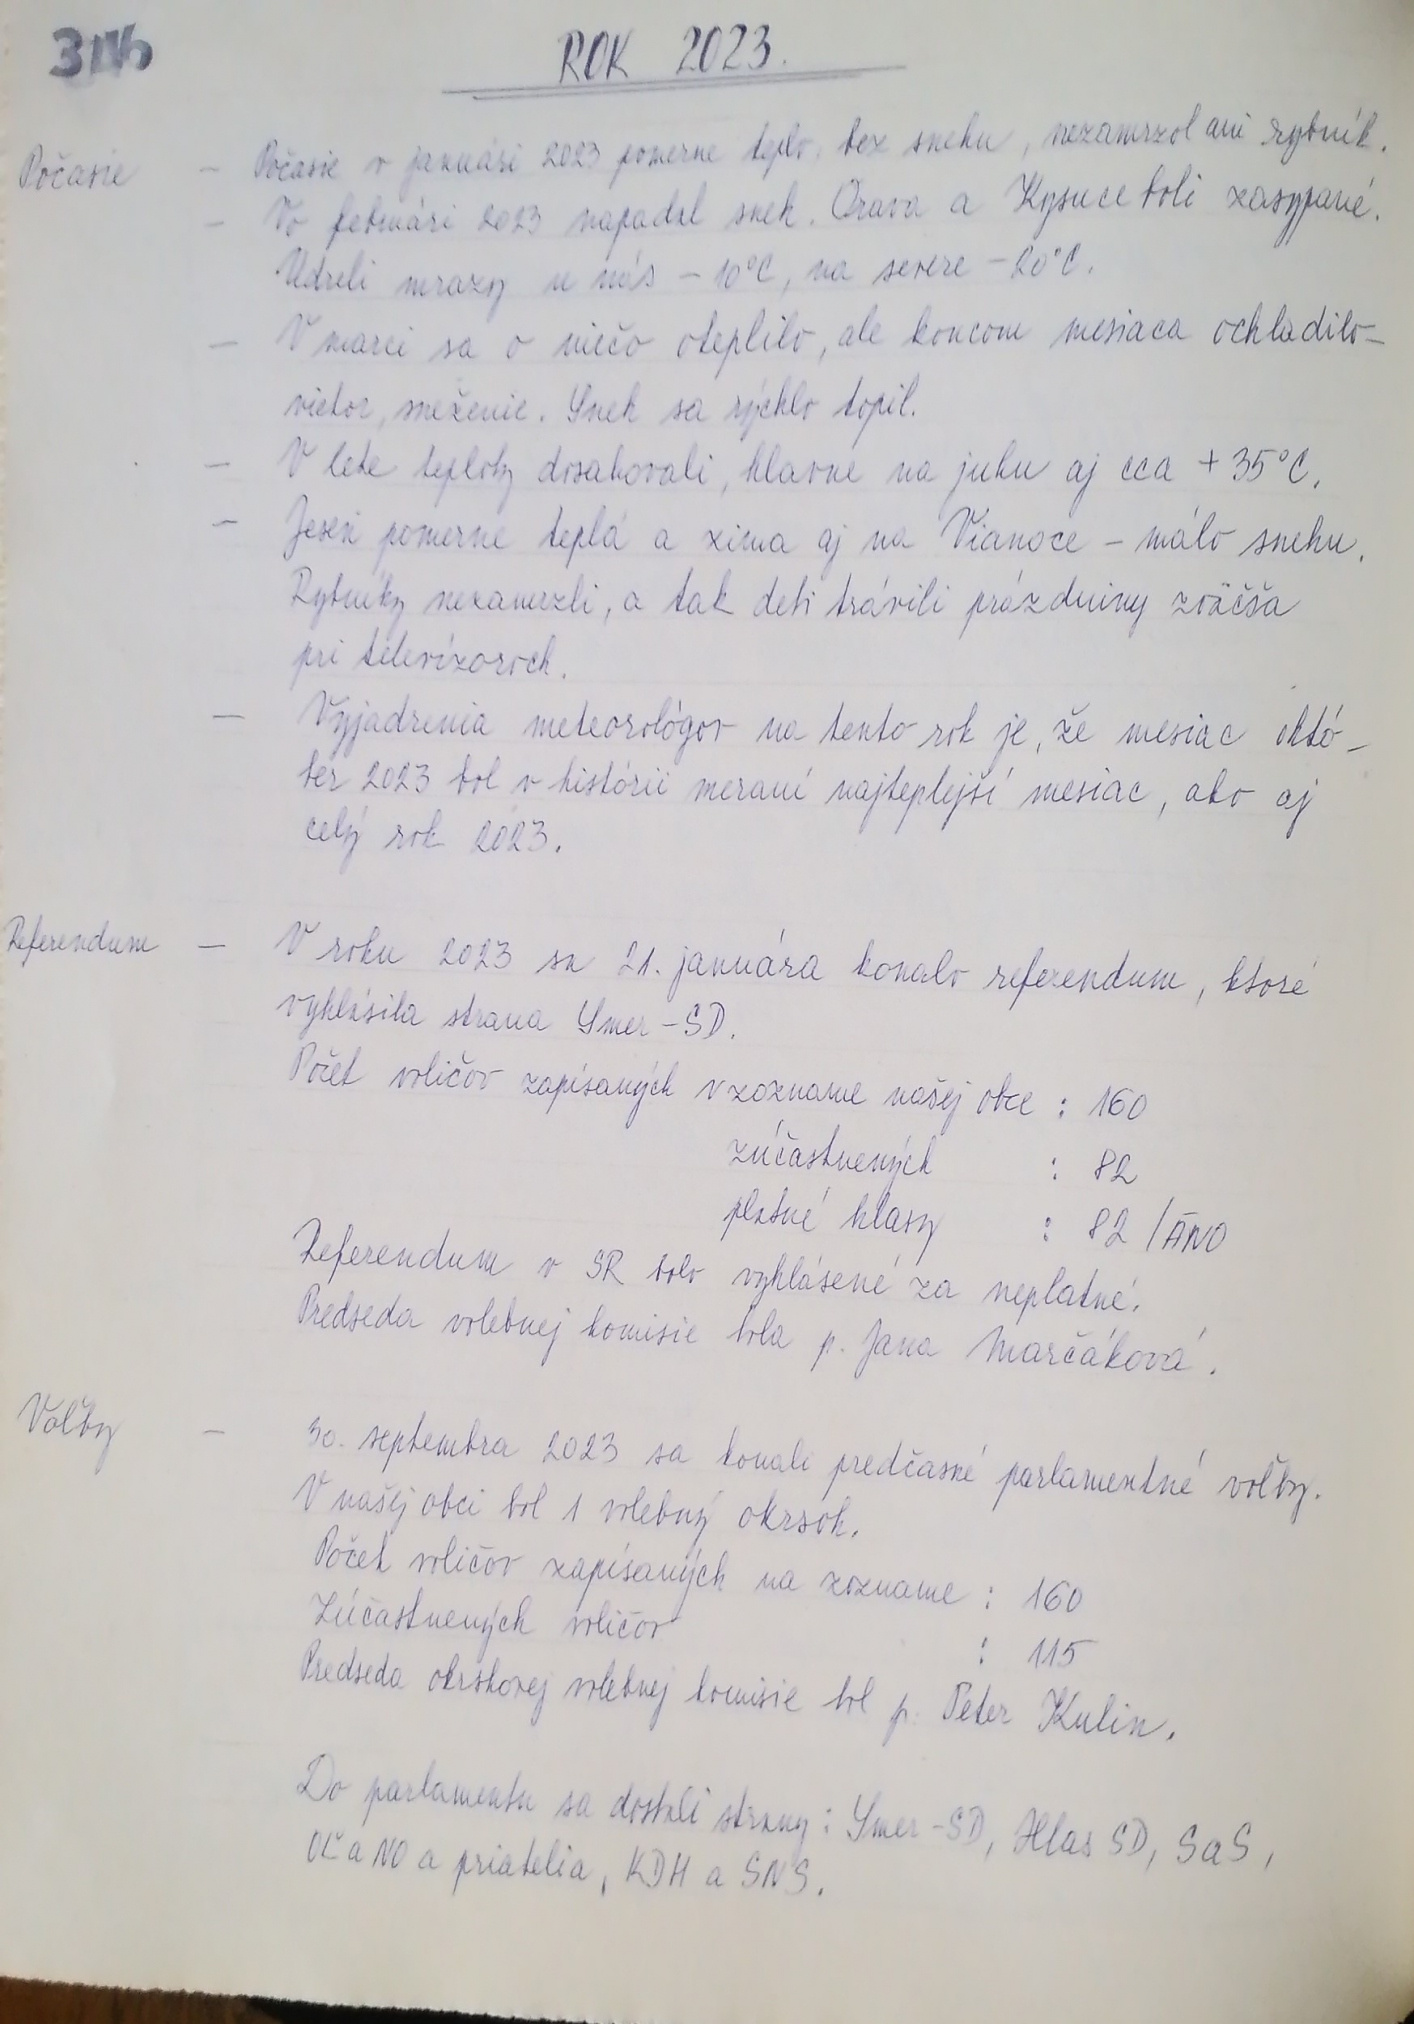 ROK 2023.
Počasie – Počasie v januári 2023 pomerne teplo, bez snehu, nezamrzol ani rybník.
– Vo februári 2023 napadol sneh. Orava a Kysuce boli zasypané.
Udreli mrazy u nás –10°C, na severe –20°C.
– V marci sa o niečo oteplilo, ale koncom mesiaca ochladilo–
vietor, sneženie. Sneh sa rýchlo topil.
– V lete teploty dosahovali, hlavne na juhu aj cca +35°C.
– Jeseň pomerne teplá a zima aj na Vianoce – málo snehu.
Rybníky nezamrzli, a tak deti trávili prázdniny zväčša
pri televízoroch.
– Vyjadrenia meteorológov na tento rok je, že mesiac októ–
ber 2023 bol v histórii meraní najteplejší mesiac, ako aj
celý rok 2023.
Referendum – V roku 2023 sa 21. januára konalo referendum, ktoré
vyhlásila strana Smer–SD.
Počet voličov zapísaných v zozname našej obce : 160
zúčastnených : 82
platné hlasy : 82 /ÁNO
Referendum v SR bolo vyhlásené za neplatné.
Predseda volebnej komisie bola p. Jana Marčáková.
Voľby – 30. septembra 2023 sa konali predčasné parlamentné voľby.
V našej obci bol 1 volebný okrsok.
Počet voličov zapísaných na zozname : 160
Zúčastnených voličov : 115
Predseda okrskovej volebnej komisie bol p. Peter Kulin.
Do parlamentu sa dostali strany : Smer–SD, Hlas SD, SaS,
OĽaNO a priatelia, KDH a SNS.